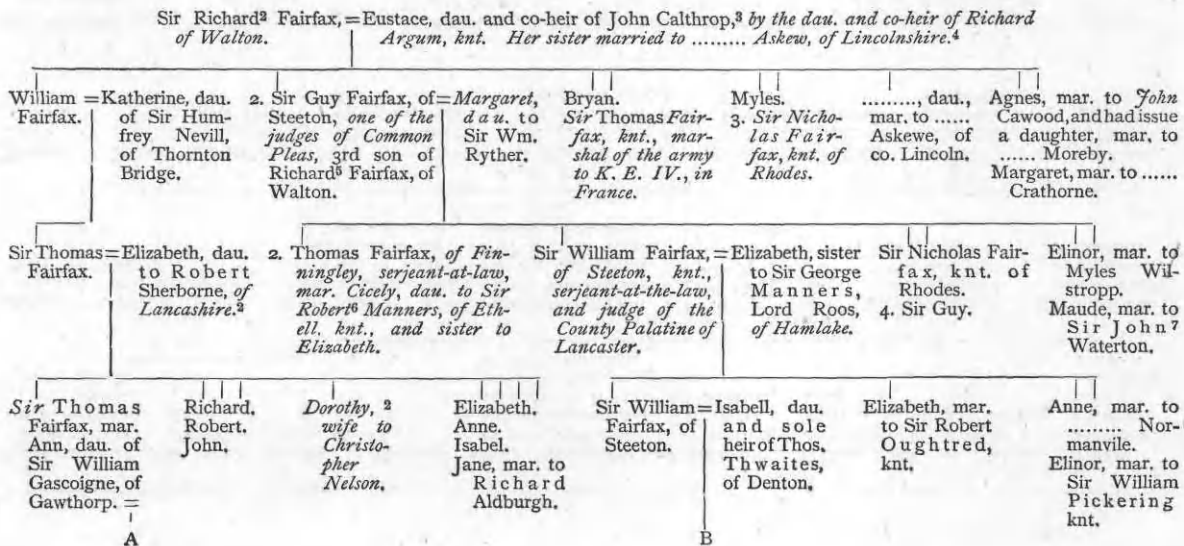 Sir Richard² Fairfax, = Eustace, dau. and co-heir of John Calthrop,³ by the dau. and co-heir of Richard
of Walton. Argum, knt. Her sister married to ......... Askew, of Lincolnshire.⁴
William =
Fairfax.
Katherine, dau.
of Sir Hum-
frey Nevill,
of Thornton
Bridge.
2. Sir Guy Fairfax, of =
Steeton, one of the
judges of Common
Pleas, 3rd son of
Richard⁵ Fairfax, of
Walton.
Margaret,
dau. to
Sir Wm.
Ryther.
Bryan.
Sir Thomas Fair-
fax, knt., mar-
shal of the army
to K. E. IV., in
France.
Myles.
3. Sir Nicho-
las Fair-
fax, knt. of
Rhodes.
........., dau.,
mar. to ......
Askewe, of
co. Lincoln.
Agnes, mar. to John
Cawood, and had issue
a daughter, mar. to
...... Moreby.
Margaret, mar. to ......
Crathorne.
Sir Thomas =
Fairfax.
Elizabeth, dau.
to Robert
Sherborne, of
Lancashire.²
2. Thomas Fairfax, of Fin-
ningley, serjeant-at-law,
mar. Cicely, dau. to Sir
Robert⁶ Manners, of Eth-
ell, knt., and sister to
Elizabeth.
Sir William Fairfax, =
of Steeton, knt.,
serjeant-at-the-law,
and judge of the
County Palatine of
Lancaster.
Elizabeth, sister
to Sir George
Manners,
Lord Roos,
of Hamlake.
Sir Nicholas Fair-
fax, knt. of
Rhodes.
4. Sir Guy.
Elinor, mar. to
Myles Wil-
stropp.
Maude, mar. to
Sir John⁷
Waterton.
Sir Thomas
Fairfax, mar.
Ann, dau. of
Sir William
Gascoigne, of
Gawthorp. =
A
Richard.
Robert.
John.
Dorothy, ²
wife to
Christo-
pher
Nelson.
Elizabeth.
Anne.
Isabel.
Jane, mar. to
Richard
Aldburgh.
Sir William =
Fairfax, of
Steeton.
Isabell, dau.
and sole
heir of Thos.
Thwaites,
of Denton.
B
Elizabeth, mar.
to Sir Robert
Oughtred,
knt.
Anne, mar. to
......... Nor-
manvile.
Elinor, mar. to
Sir William
Pickering
knt.